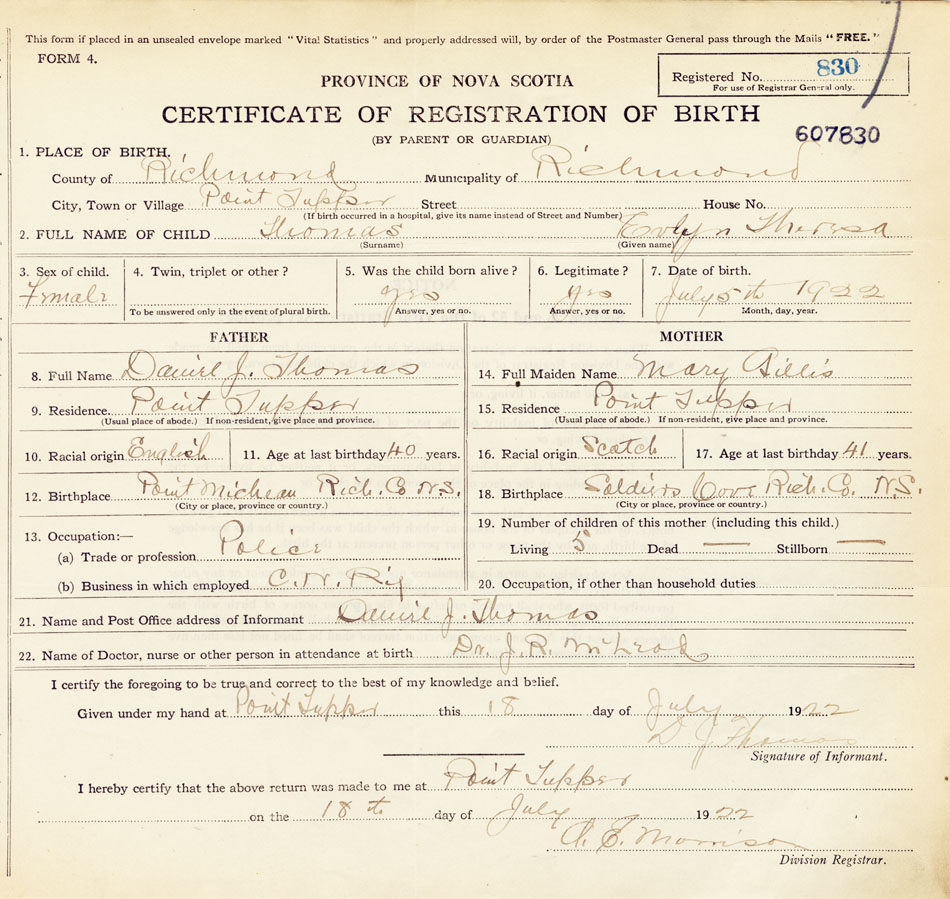 This form if placed in an unsealed envelope marked "Vital Statistics" and properly addressed will, by order of the Postmaster General pass through the Mails "FREE."
FORM 4.
Registered No. 830
For use of Registrar General only.
PROVINCE OF NOVA SCOTIA
CERTIFICATE OF REGISTRATION OF BIRTH
(BY PARENT OR GUARDIAN)
607830
1. PLACE OF BIRTH.
County of Richmond Municipality of Richmond
City, Town or Village Point Tupper Street House No.
(If birth occurred in a hospital, give its name instead of Street and Number)
2. FULL NAME OF CHILD Thomas Evlyn Theresa
(Surname) (Given name)
3. Sex of child. Female
4. Twin, triplet or other?
To be answered only in the event of plural birth.
5. Was the child born alive? yes
Answer, yes or no.
6. Legitimate? yes
Answer, yes or no.
7. Date of birth. July 5th 1922
Month, day, year.
NOTICE
FATHER
8. Full Name Daniel J. Thomas
9. Residence. Point Tupper
(Usual place of abode.) If non-resident, give place and province.
10. Racial origin English 11. Age at last birthday 40 years.
12. Birthplace Point Micheau Rich. Co N.S.
(City or place, province or country.)
13. Occupation:—
(a) Trade or profession Police
(b) Business in which employed C. N. Rig
MOTHER
14. Full Maiden Name Mary Gillis
15. Residence Point Tupper
(Usual place of abode.) If non-resident, give place and province.
16. Racial origin Scotch 17. Age at last birthday 41 years.
18. Birthplace Soldiers Cove Rich. Co. N.S.
(City or place, province or country.)
19. Number of children of this mother (including this child.)
Living 5 Dead — Stillborn —
20. Occupation, if other than household duties
21. Name and Post Office address of Informant Daniel J. Thomas
22. Name of Doctor, nurse or other person in attendance at birth Dr. J. R. McLeod
I certify the foregoing to be true and correct to the best of my knowledge and belief.
Given under my hand at Point Tupper this 18 day of July 1922
D J Thomas
Signature of Informant.
I hereby certify that the above return was made to me at Point Tupper
on the 18th day of July 1922
A. E. Morrison
Division Registrar.